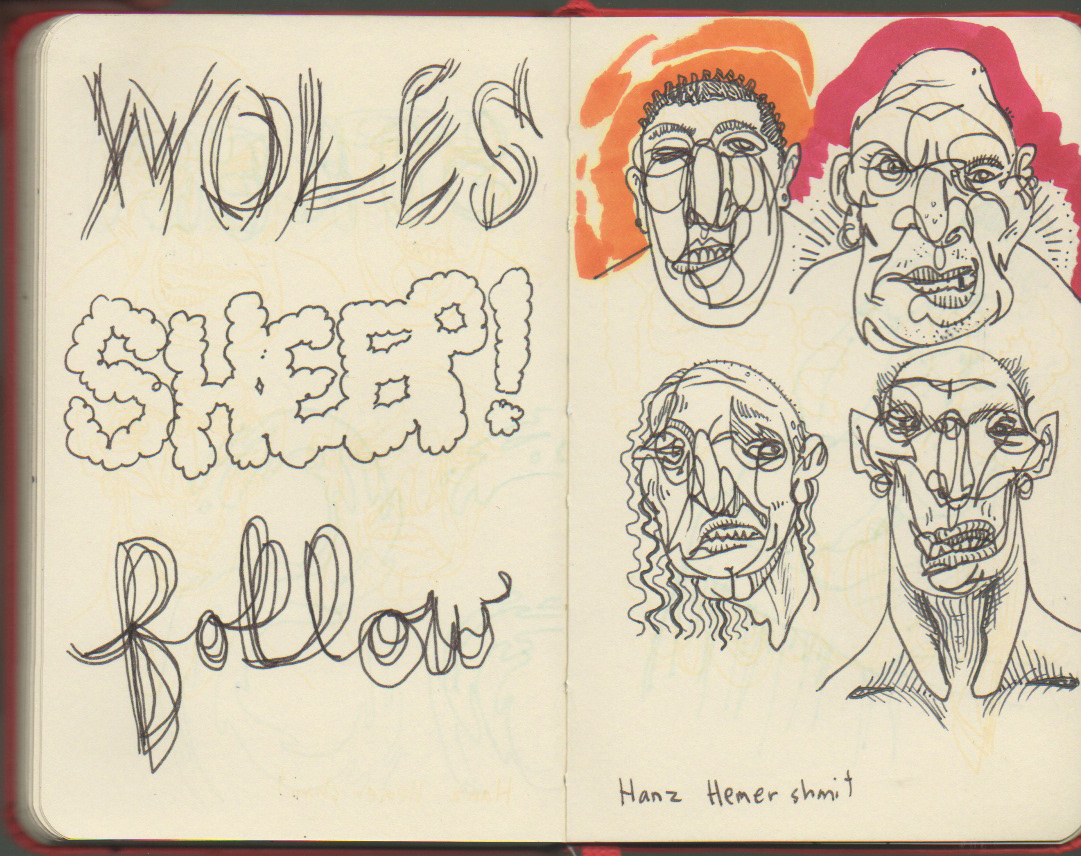 WOLES
SHEEP!
follow
Hanz Hemer shmit